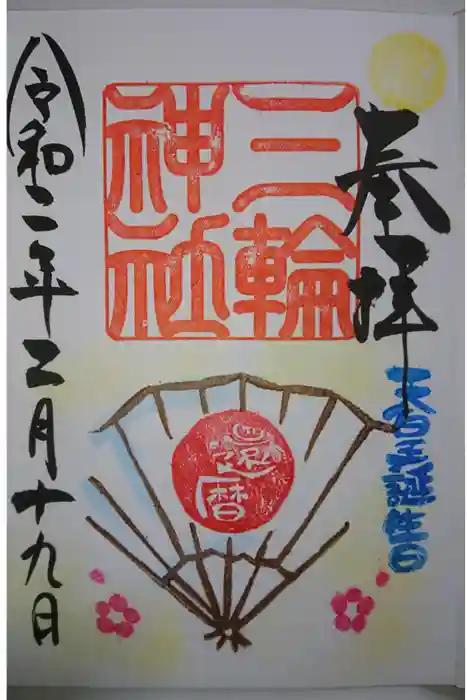 奉拝
天皇誕生日
三輪
神社
還暦
令和二年二月十九日